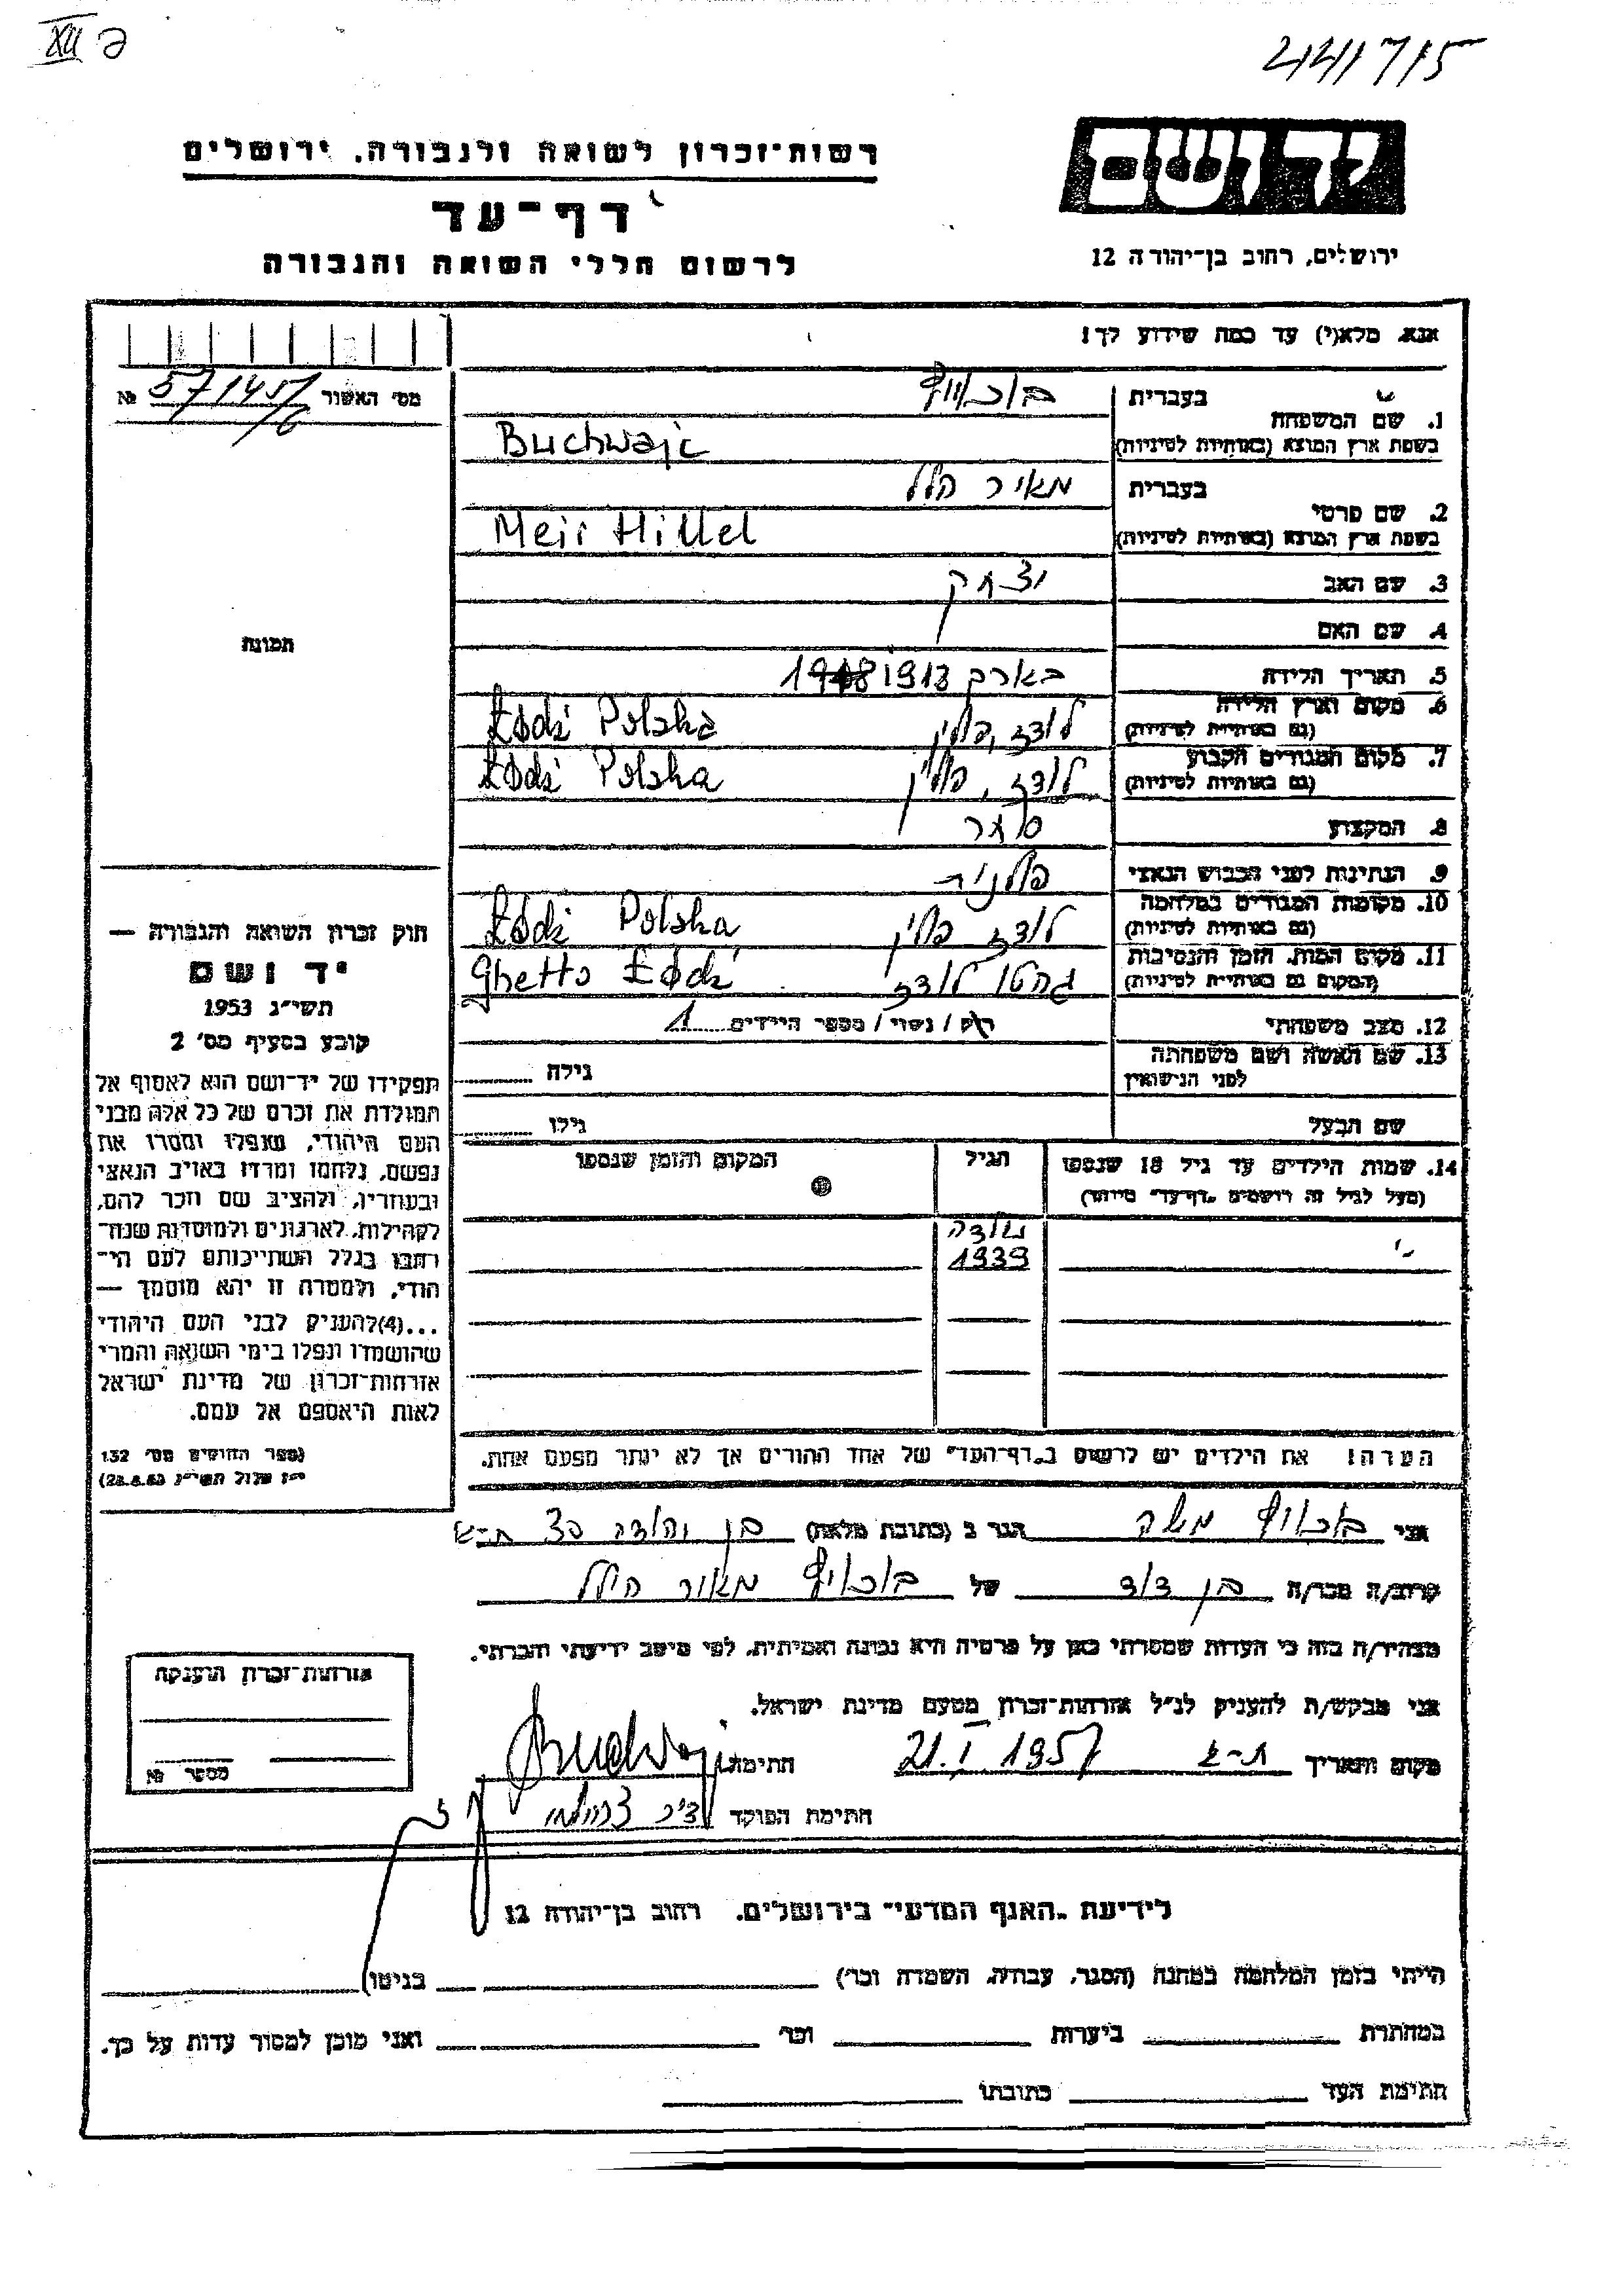 XII ב
דף־עד
רשות־זכרון לשואה ולגבורה, ירושלים
דף־עד
לרשום חללי השואה והגבורה
יד ושם
ירושלים, רחוב בן־יהודה 12
אנא, מלא(י) עד כמה שידוע לך!
מס׳ האשור №
1. שם המשפחה
בעברית
בשפת ארץ המוצא (באותיות לטיניות)
Buchwajc
2. שם פרטי
בעברית מאיר הלל
בשפת ארץ המוצא (באותיות לטיניות)
Meir Hillel
3. שם האב יצחק
4. שם האם
5. תאריך הלידה בארך 1913
6. מקום וארץ הלידה לודז, פולין
(גם באותיות לטיניות) Łódź Polska
7. מקום המגורים הקבוע לודז, פולין
(גם באותיות לטיניות) Łódź Polska
8. המקצוע סוחר
9. הנתינות לפני הכבוש הנאצי פולנית
10. מקומות המגורים במלחמה לודז פולין
(גם באותיות לטיניות) Łódź Polska
11. מקום המות, הזמן והנסיבות גהטו לודז
(המקום גם באותיות לטיניות) Ghetto Łódź
12. מצב משפחתי רוק / נשוי / מספר הילדים 1
13. שם האשה ושם משפחתה
לפני הנישואין
גילה
שם הבעל גילו
14. שמות הילדים עד גיל 18 שנספו
(מעל לגיל זה רושמים "דף־עד" מיוחד)
הגיל
המקום והזמן שנספו
נולדה
1939
הערה! את הילדים יש לרשום ב"דף־העד" של אחד ההורים אך לא יותר מפעם אחת.
תמונה
חוק זכרון השואה והגבורה —
יד ושם
תשי״ג 1953
קובע בסעיף מס׳ 2
תפקידו של יד־ושם הוא לאסוף אל
המולדת את זכרם של כל אלה מבני
העם היהודי, שנפלו ומסרו את
נפשם, נלחמו ומרדו באויב הנאצי
ובעוזריו, ולהציב שם וזכר להם,
לקהילות, לארגונים ולמוסדות שנח־
רבו בגלל השתייכותם לעם הי־
הודי, ולמטרה זו יהא מוסמך —
...(4)להעניק לבני העם היהודי
שהושמדו ונפלו בימי השואה והמרי
אזרחות־זכרון של מדינת ישראל
לאות היאספם אל עמם.
(ספר החוקים מס׳ 132
י״ז אלול תשי״ג 28.8.53)
אני משה הגר ב (כתובת מלאה) בן יהודה
קרוב/ה מכר/ה בן דוד של מאיר הילל
מצהיר/ה בזה כי העדות שמסרתי כאן על פרטיה היא נכונה ואמיתית, לפי מיטב ידיעתי והכרתי.
אני מבקש/ת להעניק לנ״ל אזרחות־זכרון מטעם מדינת ישראל.
מקום ותאריך ת-א 21.I 1957 חתימה
חתימת הפוקד
אזרחות־זכרון הוענקה
מספר №
לידיעת "האגף המדעי" בירושלים, רחוב בן־יהודה 12
הייתי בזמן המלחמה במחנה (הסגר, עבודה, השמדה וכר׳) בגיטו
במחתרת ביערות וכר׳ ואני מוכן למסור עדות על כך.
חתימת העד כתובתו